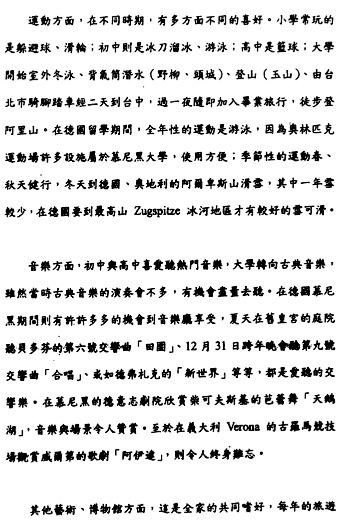 運動方面，在不同時期，有多方面不同的喜好。小學常玩的
是躲避球、滑輪；初中則是冰刀溜冰、游泳；高中是籃球；大學
開始室外冬泳、背氣筒潛水（野柳、頭城）、登山（玉山）、由台
北市騎腳踏車經二天到台中，過一夜隨即加入畢業旅行，徒步登
阿里山。在德國留學期間，全年性的運動是游泳，因為奧林匹克
運動場許多設施屬於慕尼黑大學，使用方便；季節性的運動春、
秋天健行，冬天到德國、奧地利的阿爾卑斯山滑雪，其中一年雪
較少，在德國要到最高山 Zugspitze 冰河地區才有較好的雪可滑。
音樂方面，初中與高中喜愛聽熱門音樂，大學轉向古典音樂，
雖然當時古典音樂的演奏會不多，有機會盡量去聽。在德國慕尼
黑期間則有許許多多的機會到音樂廳享受，夏天在舊皇宮的庭院
聽貝多芬的第六號交響曲「田園」、12 月 31 日跨年晚會聽第九號
交響曲「合唱」、或如德弗札克的「新世界」等等，都是愛聽的交
響樂。在慕尼黑的德意志劇院欣賞柴可夫斯基的芭蕾舞「天鵝
湖」，音樂與場景令人贊賞。至於在義大利 Verona 的古羅馬競技
場觀賞威爾第的歌劇「阿伊達」，則令人終身難忘。
其他藝術、博物館方面，這是全家的共同嗜好，每年的旅遊